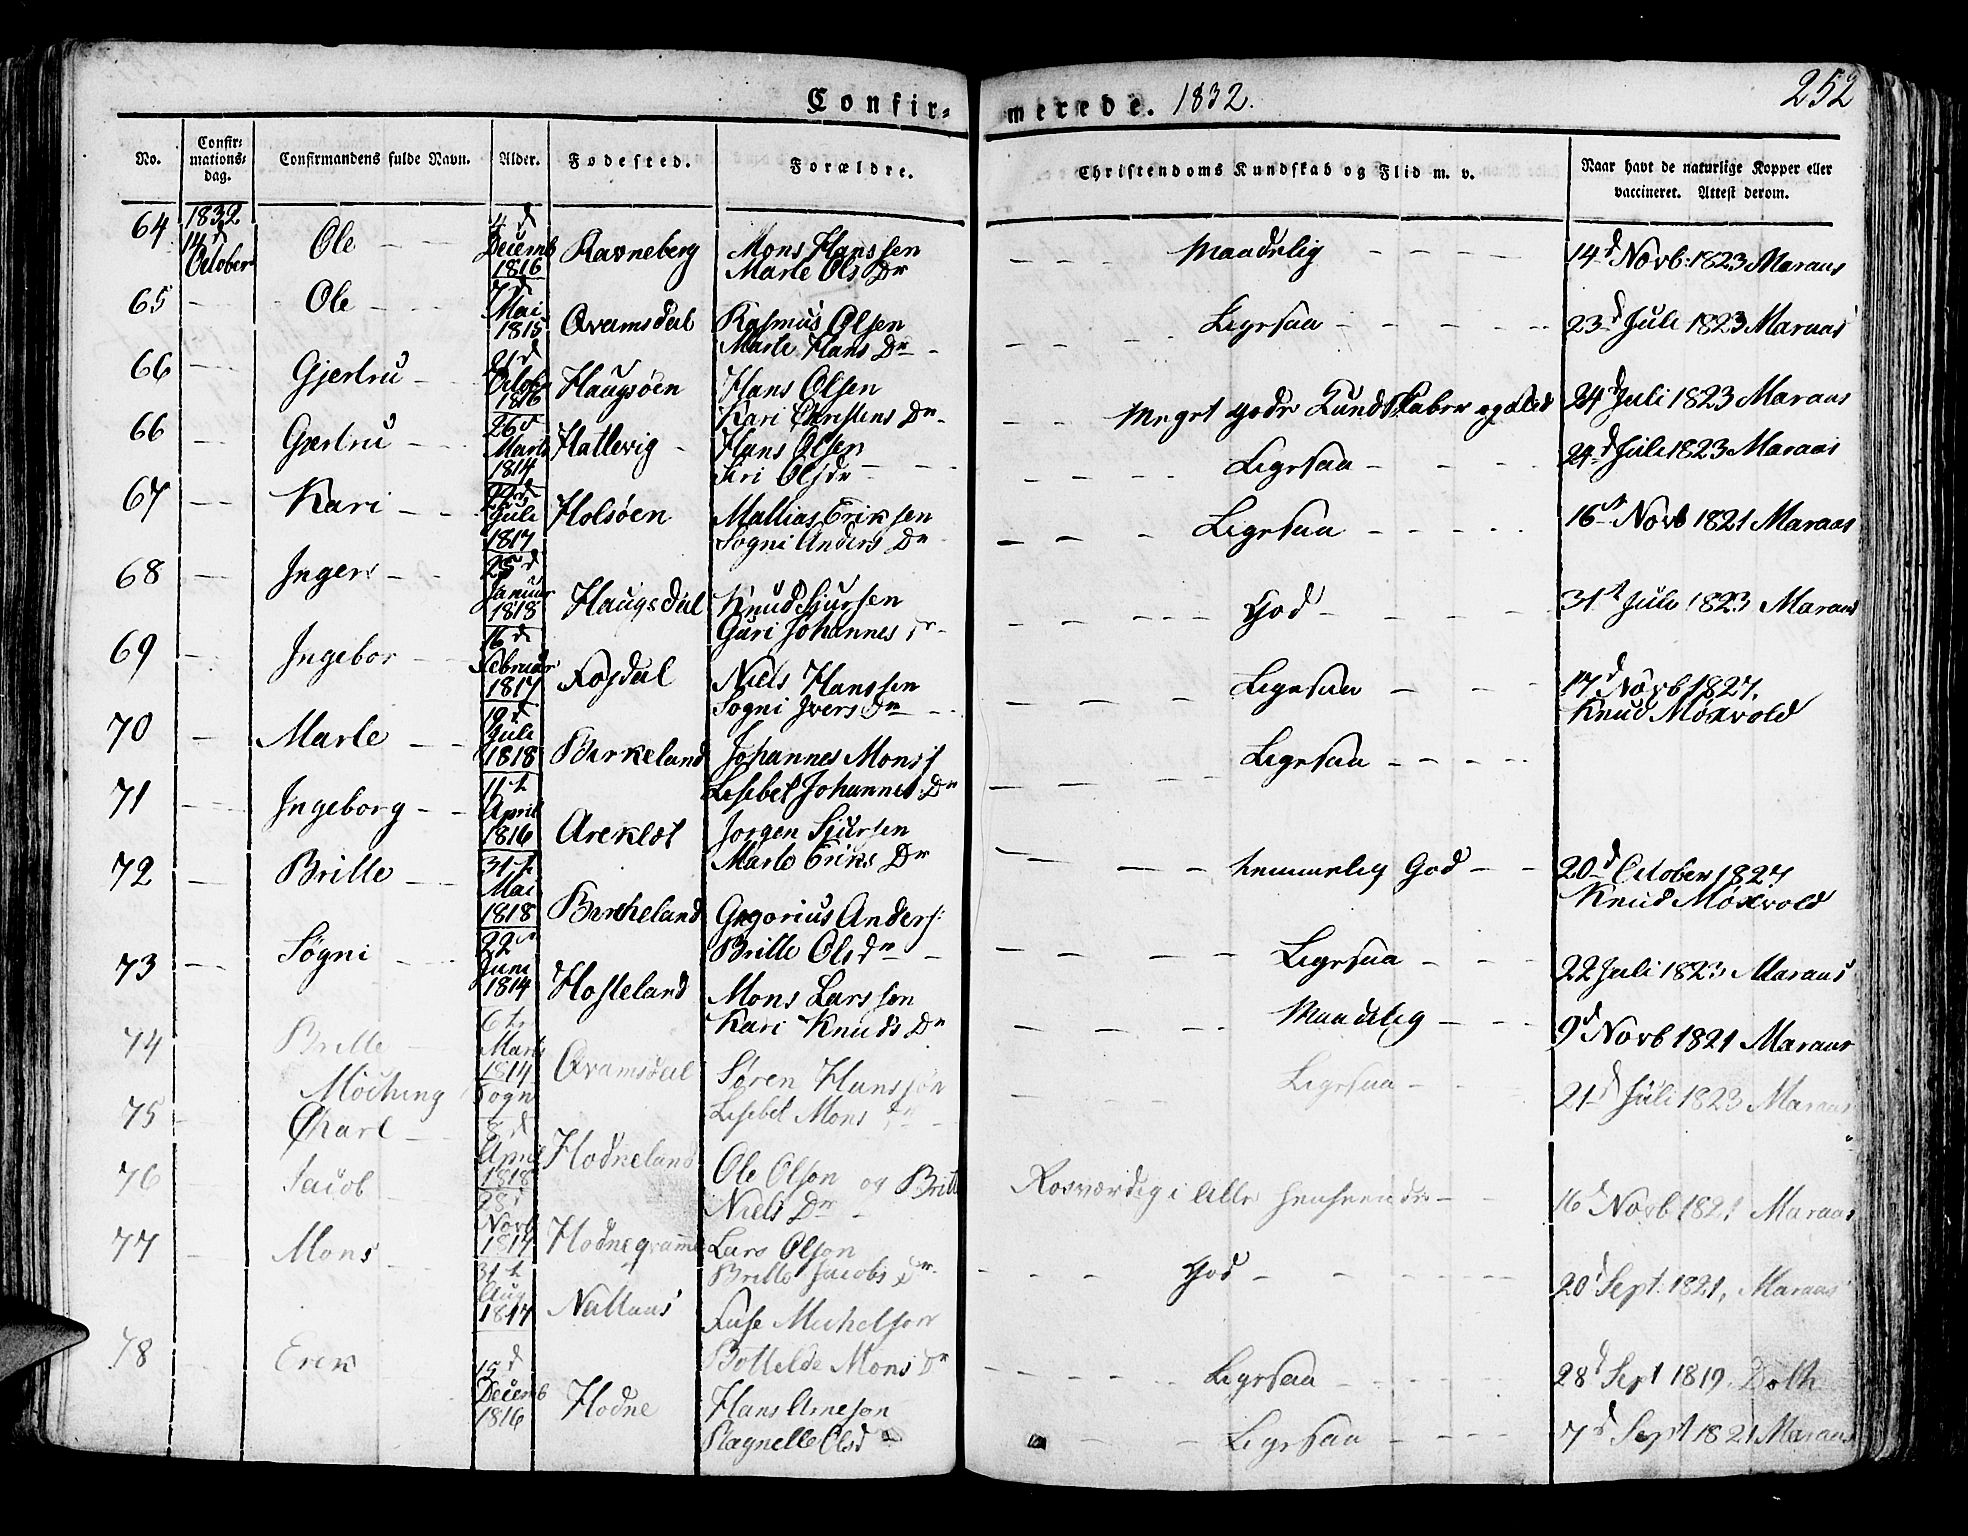 Confir- merede. 1832. 252
No. Confirmationsdag. Confirmandens fulde Navn. Alder. Fødested. Forældre. Christendoms Kundskab og Flid m. v. Naar havt de naturlige Kopper eller vaccineret. Attest derom.
64 1832 14d October Ole 4d Decemb 1816 Ravneberg Mons Hanssen Marte Ols Dr Maadelig 14d Novb: 1823 Maraas
65 Ole 7d Mai 1815 Qvamsdal Rasmus Olsen Marte Hans Dr Ligesaa 23d Juli 1823 Maraas
66 Gjertru 21d Octobr 1816 Haugsøen Hans Olsen Kari Christens Dr Meget gode Kundskaber og Flid 24d Juli 1823 Maraas
66 Gjertru 26d Marts 1814 Hatlevig Hans Olsen Siri Olsdr Ligesaa 24d Juli 1823 Maraas
67 Kari Juli 1817 Holsøen Mathias Eriksen Søgni Anders Dr Ligesaa 16d Novb 1821 Maraas
68 Ingers 25d Januar 1818 Haugsdal Knud Sjursen Guri Johannes Dr God 31t Juli 1823 Maraas
69 Ingebor 16d Februar 1817 Niels Hanssen Søgni Ivers Dr Ligesaa 17d Novb 1827. Knud Møxvold
70 Marte 19d Juli 1818 Birkeland Johannes Mons: Lisebet Johannes Dr Ligesaa
71 Ingeborg 11t April 1816 Areklet Jørgen Sjursen Marte Eriks Dr temmelig God 20d October 1827 Knud Møxvold
72 Britte 31t Mai 1818 Birkeland Gregorius Anders: Britte Olsdr Ligesaa 22 Juli 1823 Maraas
73 Søgni 22d Juni 1814 Hosteland Mons Larssen Kari Knuds Dr Maadelig 9d Novb 1821 Maraas
74 Britte 6t Marts 1814 Qvamsdal Søren Hanssøn Lisebet Mons Dr Ligesaa 21d Juli 1823 Maraas
Sogn
75 Carl 8d April 1818 Hodneland Ole Olsøn og Britte Niels Dr Rosværdig i Alle Henseender 16d Novb 1821 Maraas
76 Jacob 28d Novb 1817 Lars Olsøn Britte Jacobs Dr God 20d Sept: 1821, Maraas
77 Mons 31t Aug 1817 Natlaas Michelsøn Bottelde Mons Dr Ligesaa 28d Sept 1819
78 Erik 15d Decemb 1816 Hodne Hans Arnesøn Ragnelle Olsd Ligesaa 7d Sept 1821 Maraas